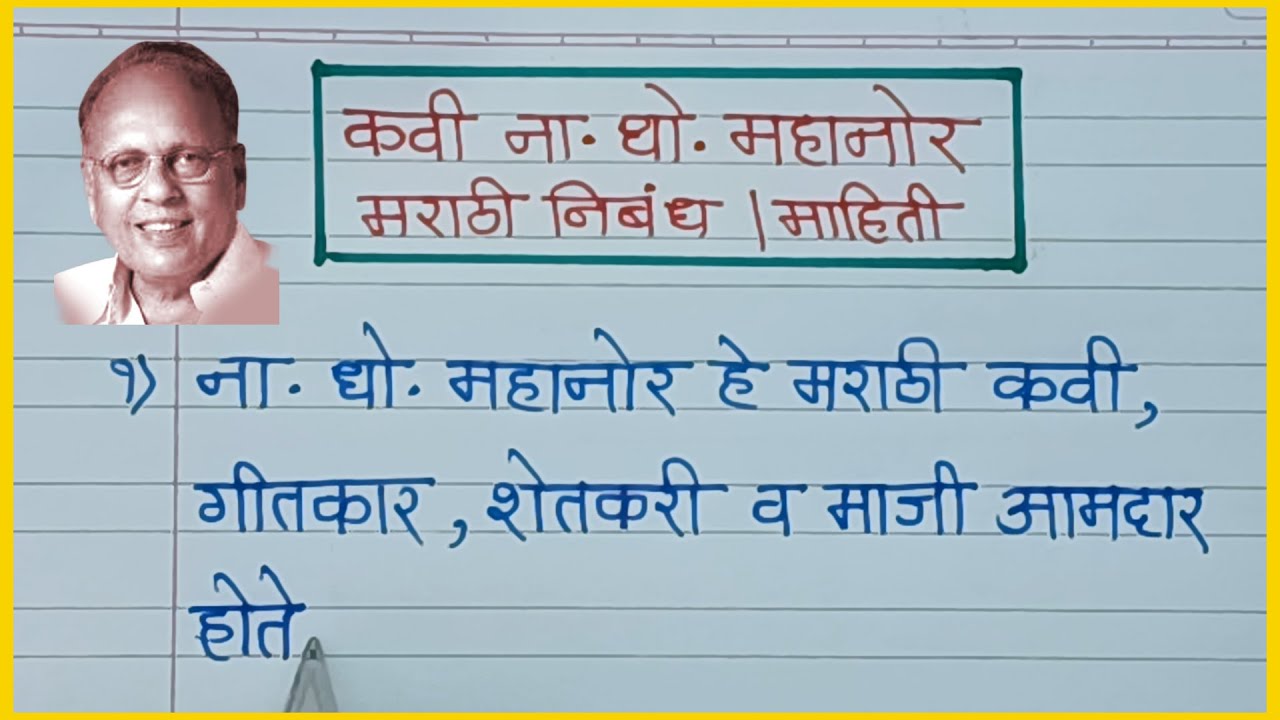 कवी ना. धो. महानोर
मराठी निबंध | माहिती
१) ना. धो. महानोर हे मराठी कवी,
गीतकार, शेतकरी व माजी आमदार
होते